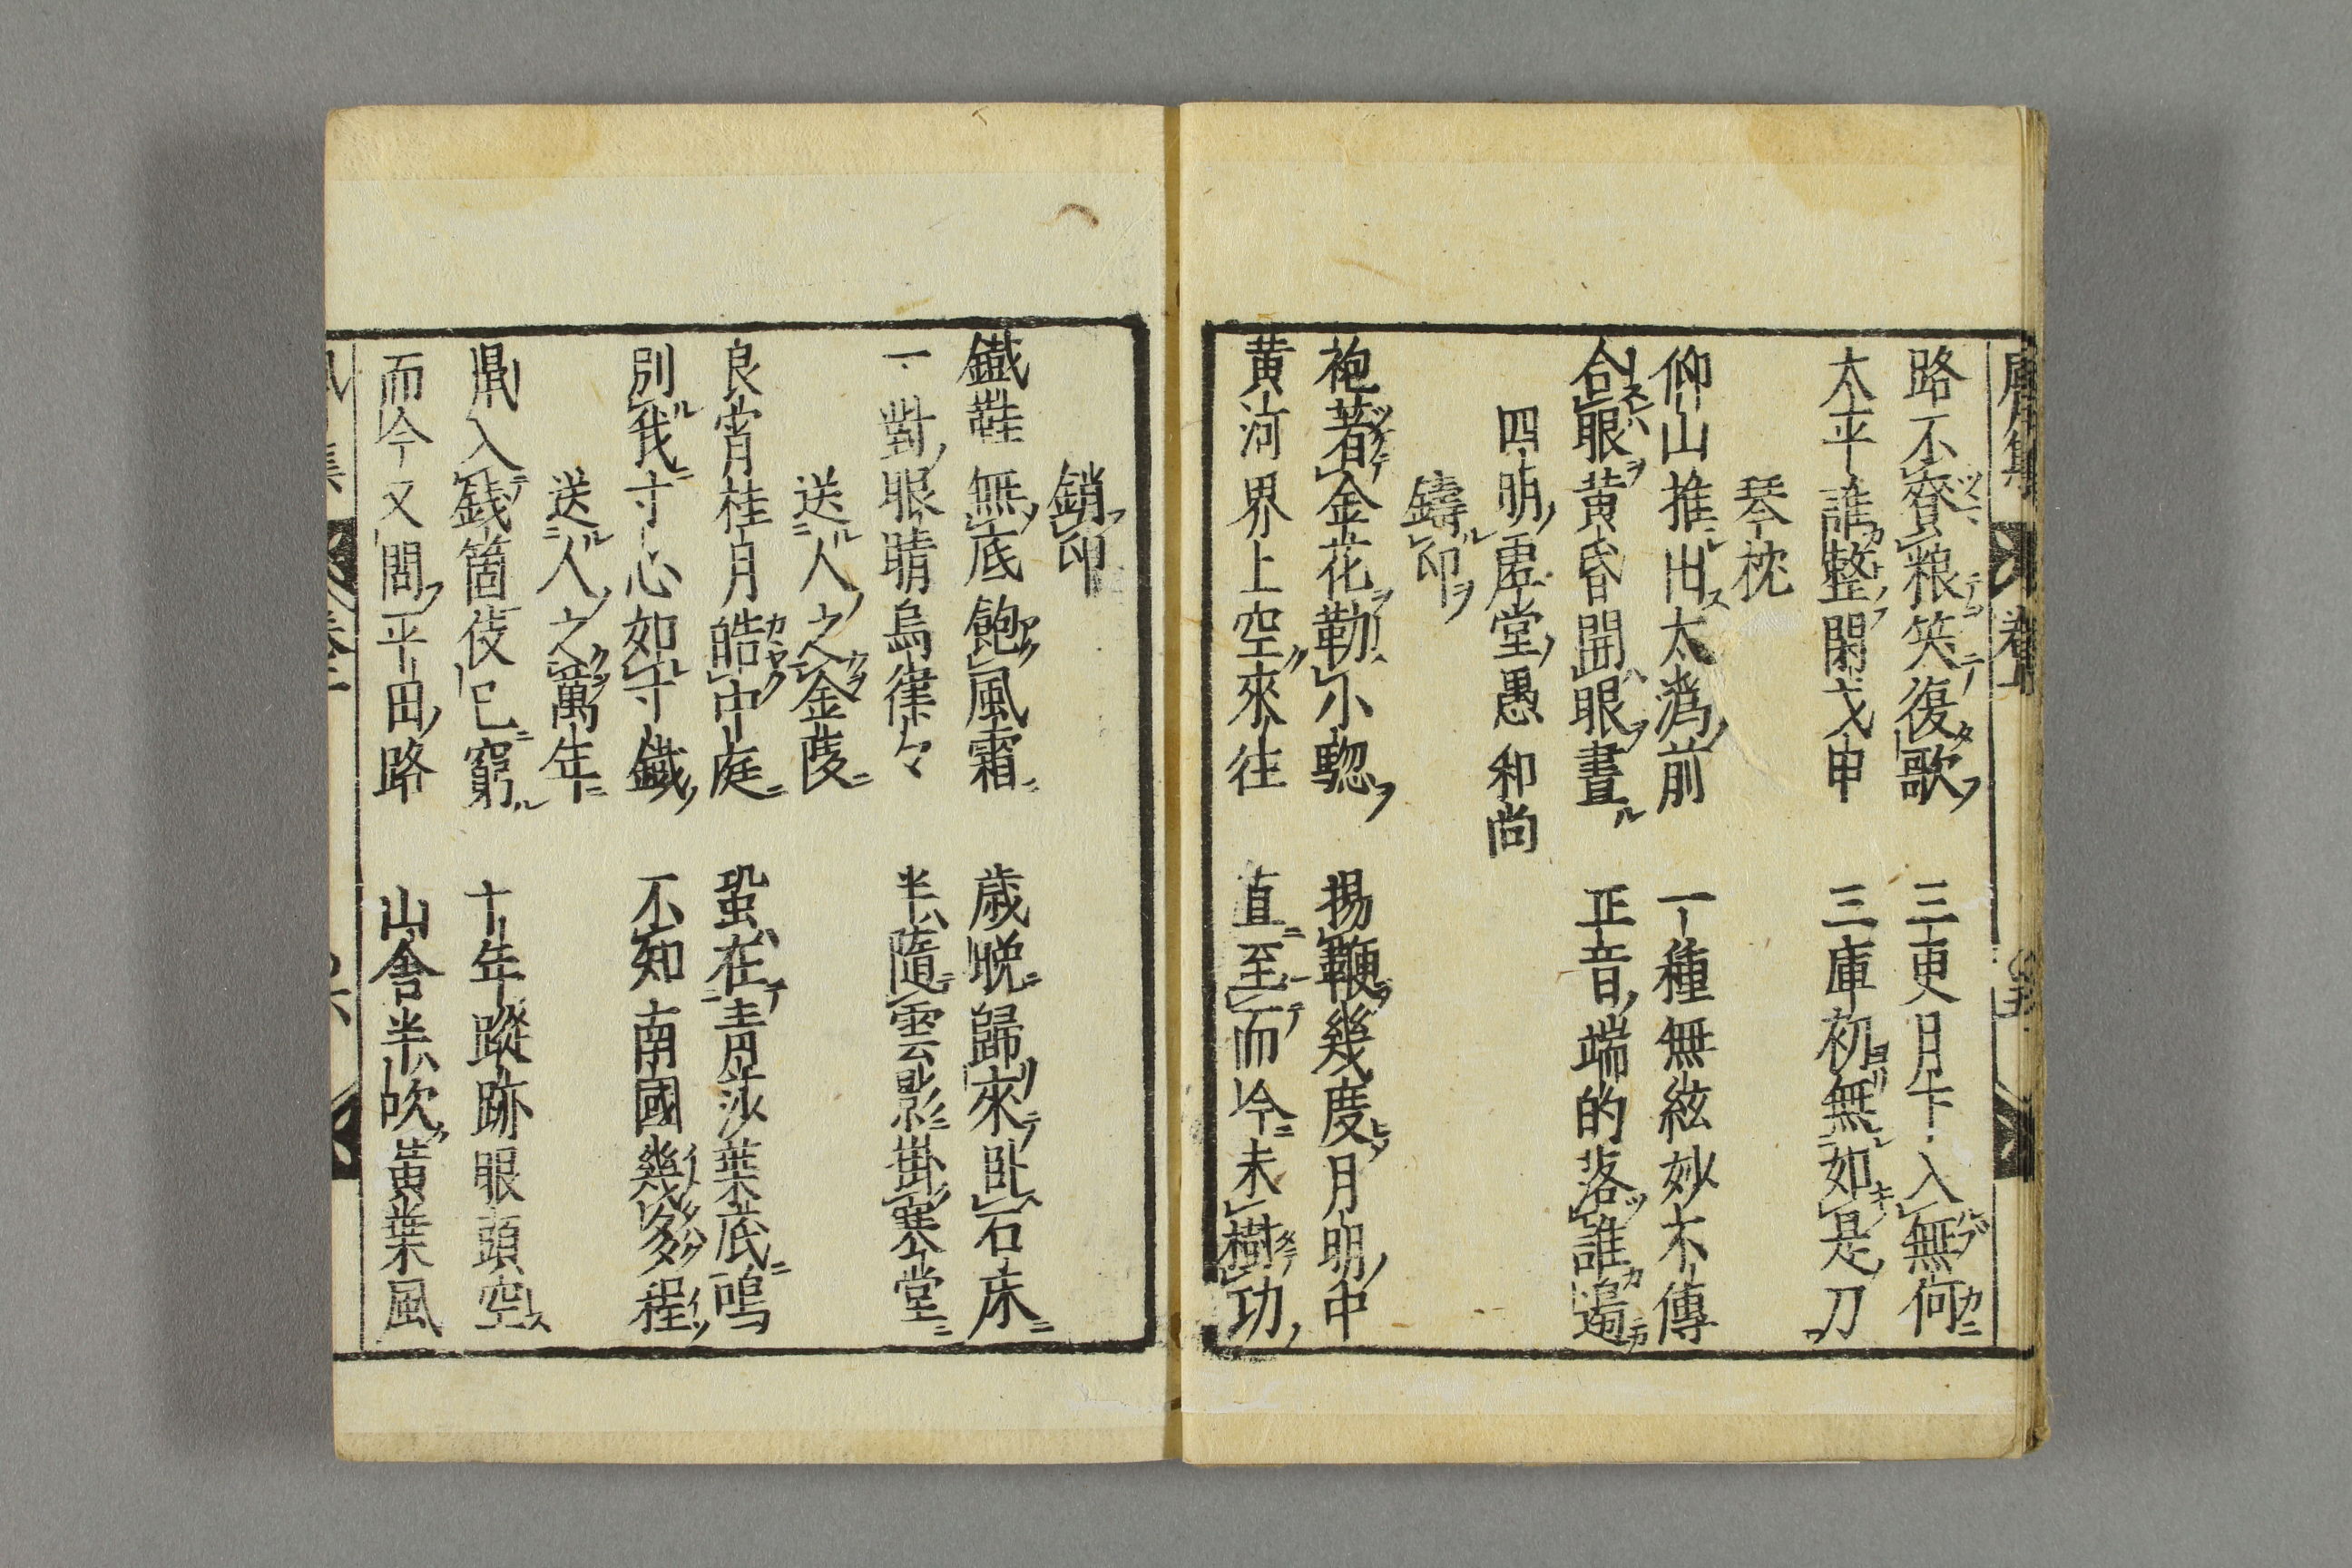 路不賷粮笑復歌　三更月下入無何
太平誰整閑戈甲　三庫初無如是刀
琴枕
仰山推出太潙前　一種無絃妙不傳
合眼黄昏開眼晝　正音端的落誰邊
四明虚堂愚和尚
鑄印
袍著金花勒小騘　揚鞭幾度月明中
黄河界上空來往　直至而今未樹功
銷印
鐵鞋無底飽風霜　歳晩歸來臥石床
一對眼睛烏律々　半隨雲影掛寒堂
送人之金陵
良宵桂月皓中庭　蛩在青莎葉底鳴
別我寸心如寸鐵　不知南國幾多程
送人之萬年
鼠入錢筒伎已窮　十年蹤跡眼頭空
而今又問平田路　山舎半吹黄葉風